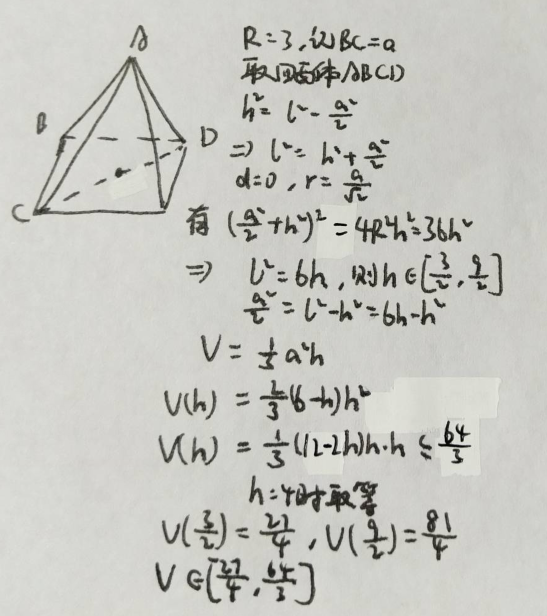 A
B
D
C
R=3,设BC=a
取四面体ABCD
h²=l²-a²/2
⇒ l²=h²+a²/2
d=0,r=a/√2
有 (a²/2+h²)²=4R²h²=36h²
⇒ l²=6h,则h∈[3/2,9/2]
a²/2=l²-h²=6h-h²
V=1/3a²h
V(h)=2/3(6-h)h²
V(h)=1/3(12-2h)h·h≤64/3
h=4时取等
V(3/2)=27/4,V(9/2)=81/4
V∈[27/4,64/3]